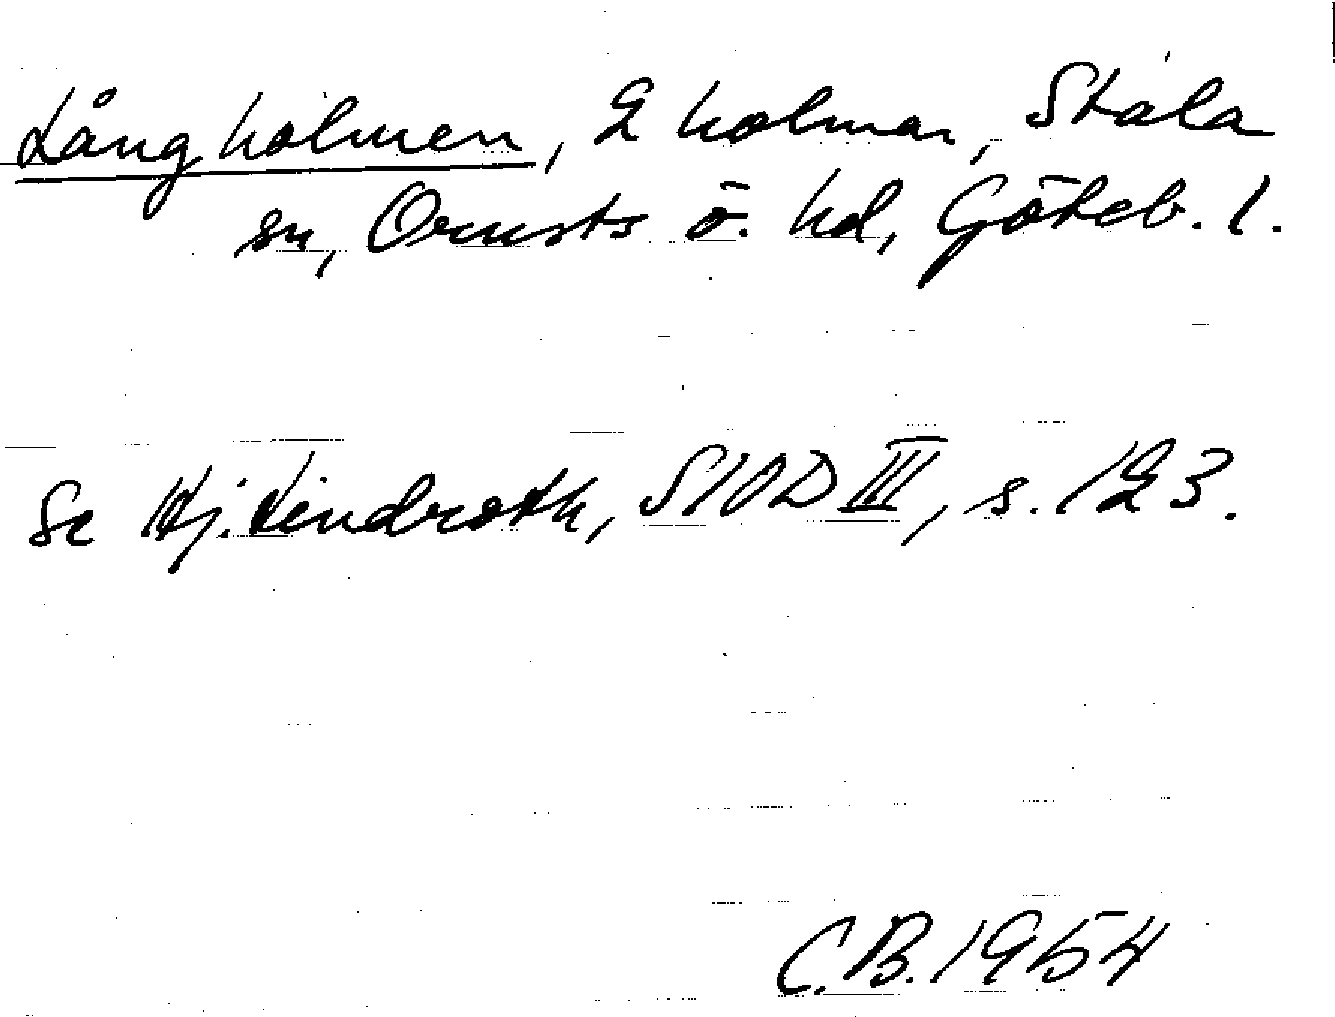 Långholmen, 2 holmar, Stala
sn, Orusts ö. hd, Göteb. l.
Se Hj. Lindroth, SIOD III, s. 123.
C.B. 1954